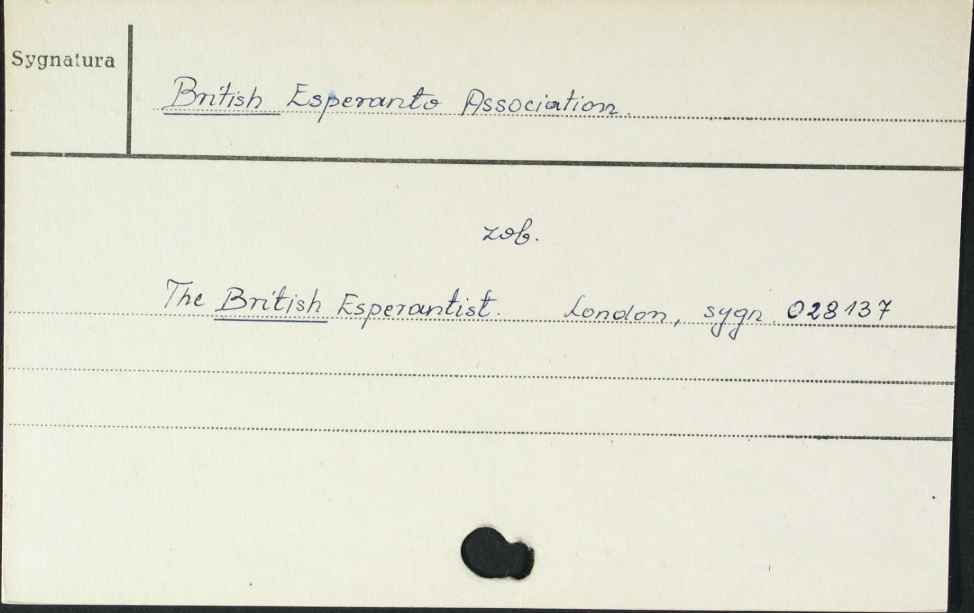 Sygnatura
British Esperanto Association.
zob.
The British Esperantist. London, sygn. 028137